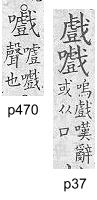 嚱
噓嚱
聲也
p470
戲嚱
嗚戲嘆辭
或从口
p37